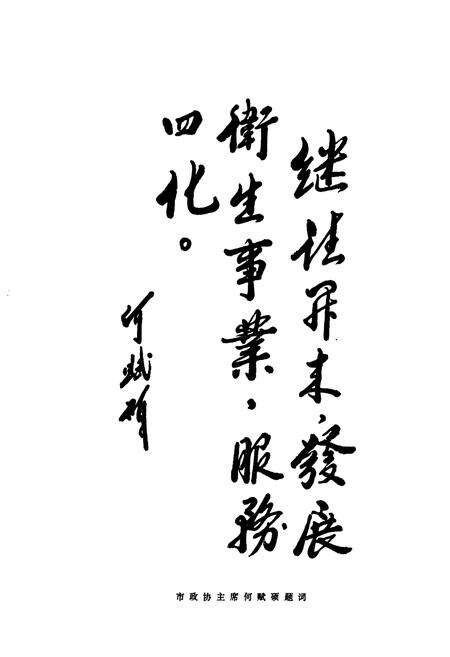 继往開来，發展
衛生事業，服務
四化。
何赋硕
市政协主席何赋硕题词